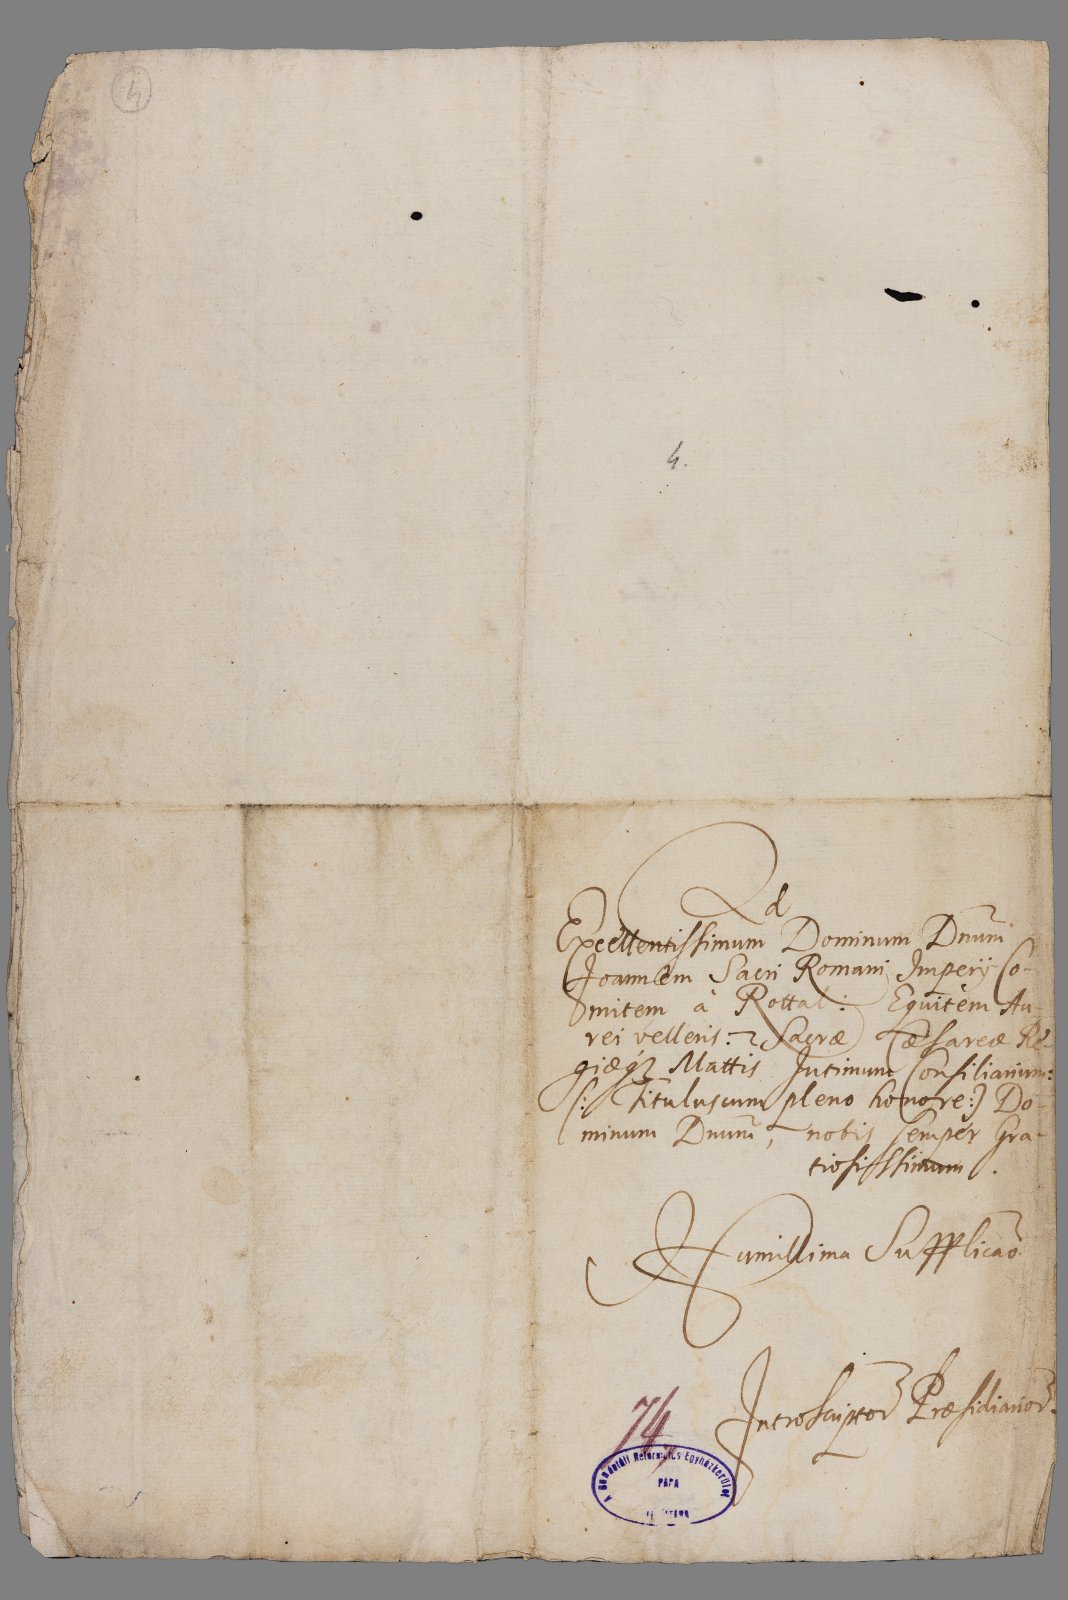 4
4.
Ad
Excellentissimum Dominum Dnum
Joannem Sacri Romani Imperij Co-
mitem à Rottal: Equitem Au-
rei velleris: Sacræ Cæsareæ Re-
giæq3 Mattis Intimum Consiliarium:
(: Tituluscum pleno honore:) Do-
minum Dnum, nobis semper Gra-
tiosissimum.
Humillima Supplicao
Introscriptor Præsidiarior
74
A Dunántúli Református Egyházkerület
PÁPA